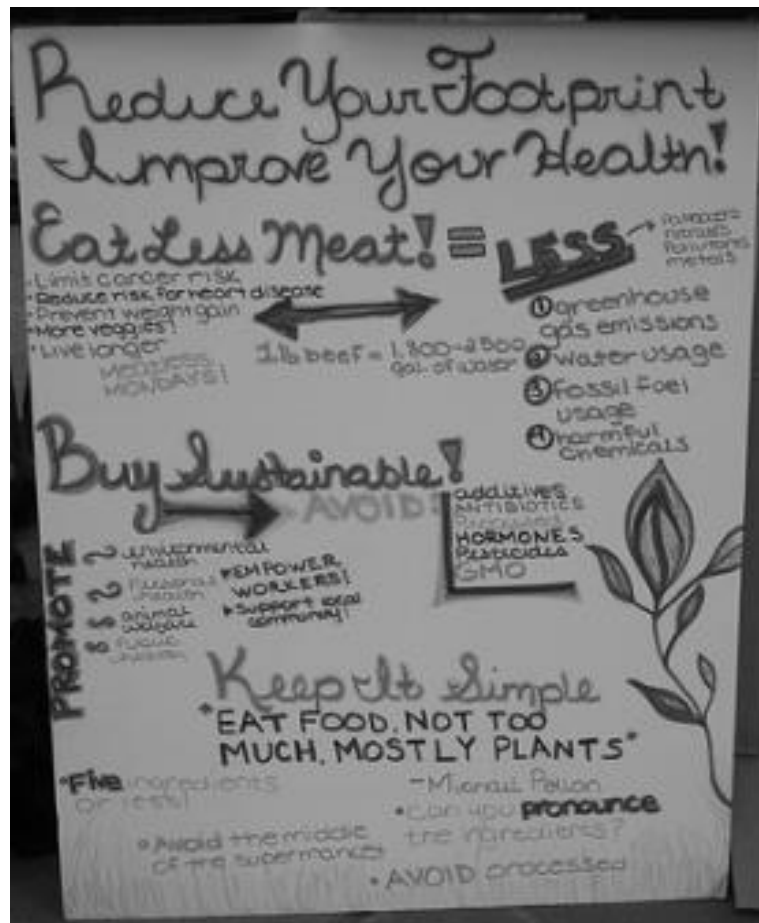 Reduce Your Footprint
Improve Your Health!
Eat Less Meat! = LESS
pollutants
metals
• Limit cancer risk
• Reduce risk for heart disease
• Prevent weight gain
• More veggies!
• Live longer
MEATLESS
MONDAYS!
1 lb beef = 1,800-2500
gal. of water
① greenhouse
gas emissions
② water usage
③ fossil fuel
usage
④ harmful
chemicals
Buy Sustainable!
AVOID:
additives
ANTIBIOTICS
HORMONES
Pesticides
GMO
PROMOTE
environmental
health
personal
health
animal
welfare
public
health
EMPOWER
WORKERS!
Support local
community!
Keep It Simple
"EAT FOOD. NOT TOO
MUCH. MOSTLY PLANTS"
- Michael Pollan
• Five ingredients
or less!
• can you pronounce
the ingredients?
• Avoid the middle
of the supermarket
• AVOID processed